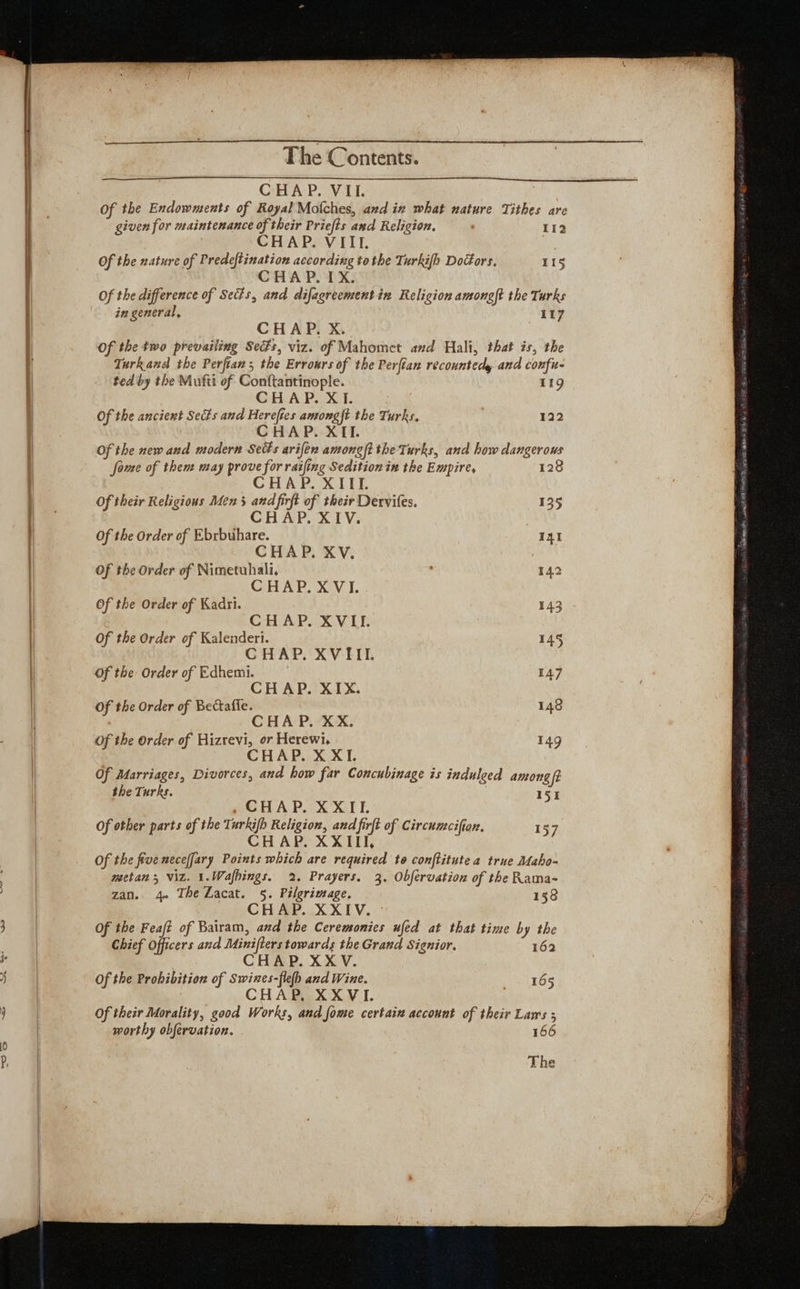 The Contents.
CHAP. VII.
Of the Endowments of Royal Moſches, and in what nature Tithes are
given for maintenance of their Prieſts and Religion. 112
CHAP. VIII.
Of the nature of Predeſtination according to the Turkiſh Doctors. 115
CHAP. IX.
Of the difference of Sects, and diſagreement in Religion amongſt the Turks
in general. 117
CHAP. X.
Of the two prevailing Sects, viz. of Mahomet and Hali, that is, the
Turk and the Perſian; the Errours of the Perſian recounted, and confu-
ted by the Mufti of Conſtantinople. 119
CHAP. XI.
Of the ancient Sects and Hereſies amongſt the Turks. 122
CHAP. XII.
Of the new and modern Sects ariſen amongſt the Turks, and how dangerous
ſome of them may prove for raiſing Sedition in the Empire. 128
CHAP. XIII.
Of their Religious Men; and firſt of their Derviſes. 135
CHAP. XIV.
Of the Order of Ebrbuhare. 141
CHAP. XV.
Of the Order of Nimetuhali. 142
CHAP. XVI.
Of the Order of Kadri. 143
CHAP. XVII.
Of the Order of Kalenderi. 145
CHAP. XVIII.
Of the Order of Edhemi. 147
CHAP. XIX.
Of the Order of Bectaſſe. 148
CHAP. XX.
Of the Order of Hizrevi, or Herewi. 149
CHAP. XXI.
Of Marriages, Divorces, and how far Concubinage is indulged amongſt
the Turks. 151
CHAP. XXII.
Of other parts of the Turkiſh Religion, and firſt of Circumciſion. 157
CHAP. XXIII.
Of the five neceſſary Points which are required to conſtitute a true Maho-
metan; viz. 1. Waſhings. 2. Prayers. 3. Obſervation of the Rama-
zan. 4. The Zacat. 5. Pilgrimage. 158
CHAP. XXIV.
Of the Feaſt of Bairam, and the Ceremonies uſed at that time by the
Chief Officers and Miniſters towards the Grand Signior. 162
CHAP. XXV.
Of the Prohibition of Swines-fleſh and Wine. 165
CHAP. XXVI.
Of their Morality, good Works, and ſome certain account of their Laws;
worthy obſervation. 166
The